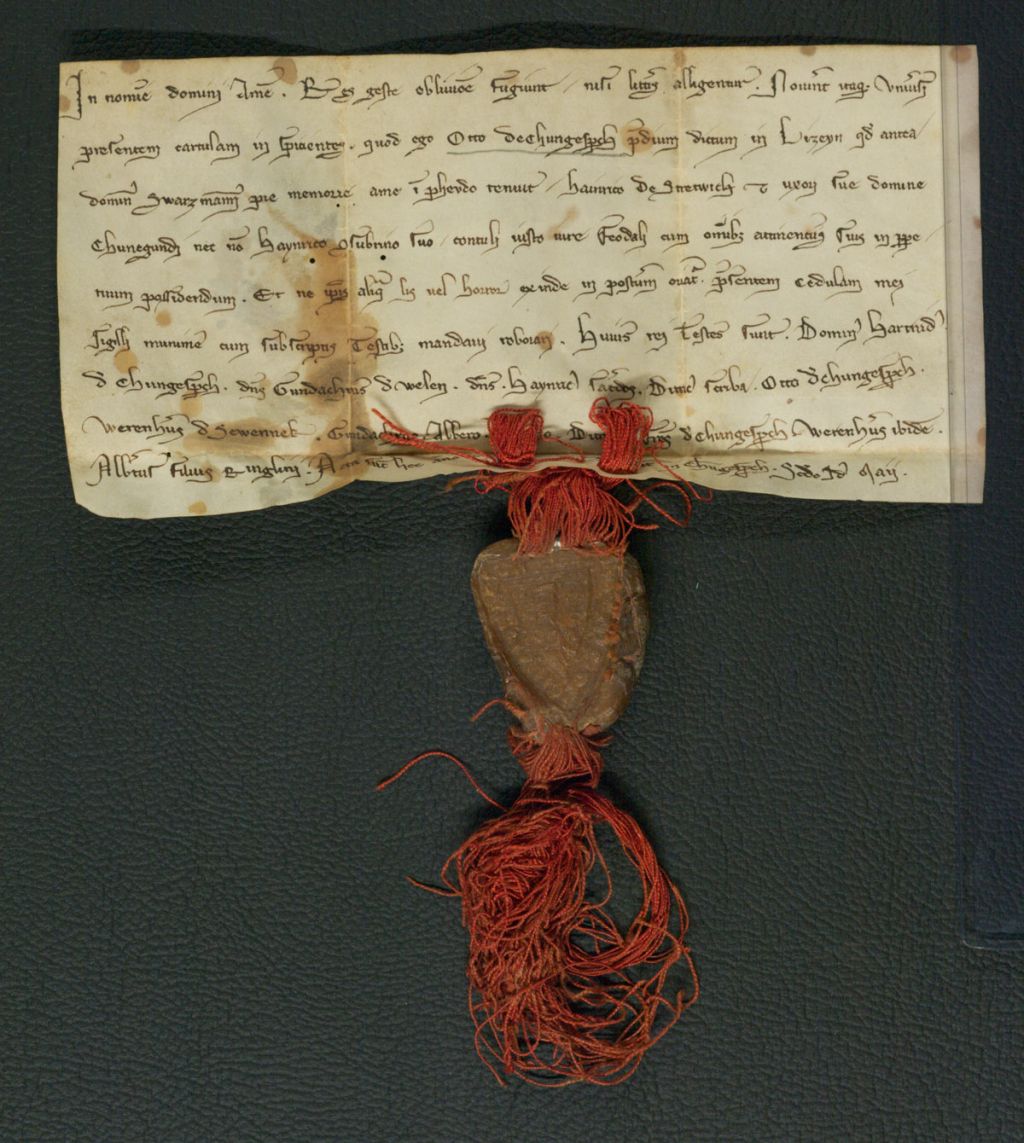 In nomīe domini Amē . Res geste oblivioē fugiunt / nisi lītis alligentur . Noverīt itaqȝ univīsi
presentem cartulam inspicientes . quod ego Otto de Chungespch p̄dium dictum in Lizeyn qd̄ antea
domin' Swarzmann' pie memorie a me ī pheodo tenuit / Hainrico de Stretwich ⁊ uxori sue domine
Chunegundi nec nō Haynrico ꝯsubrino suo contuli iusto iure feodali cum omībȝ attinentiis suis in ppe
tuum possidendum . Et ne ip̄is aliqͣ lis vel horror exinde in posťum oriať . pͥsentem cedulam mei
sigilli munimīe cum subscriptis testibȝ mandavi roborari . Huius rei testes sunt . Domin' Hartnid'
d' Chungesp̄ch . dn̄s Gundachrus d' Welen . dn̄s . Haynric' sac̄dos . Ditric' scriba . Otto d' Chungesp̄ch .
Werenh'us d' Sewennek . Gundachrus . Albero . d' Chungesp̄ch . Werenh'us ibidē .
Alb'tus filius Ringlini . Acta sūt hec in Chūgesp̄ch . Sc̄do Id' Maii .